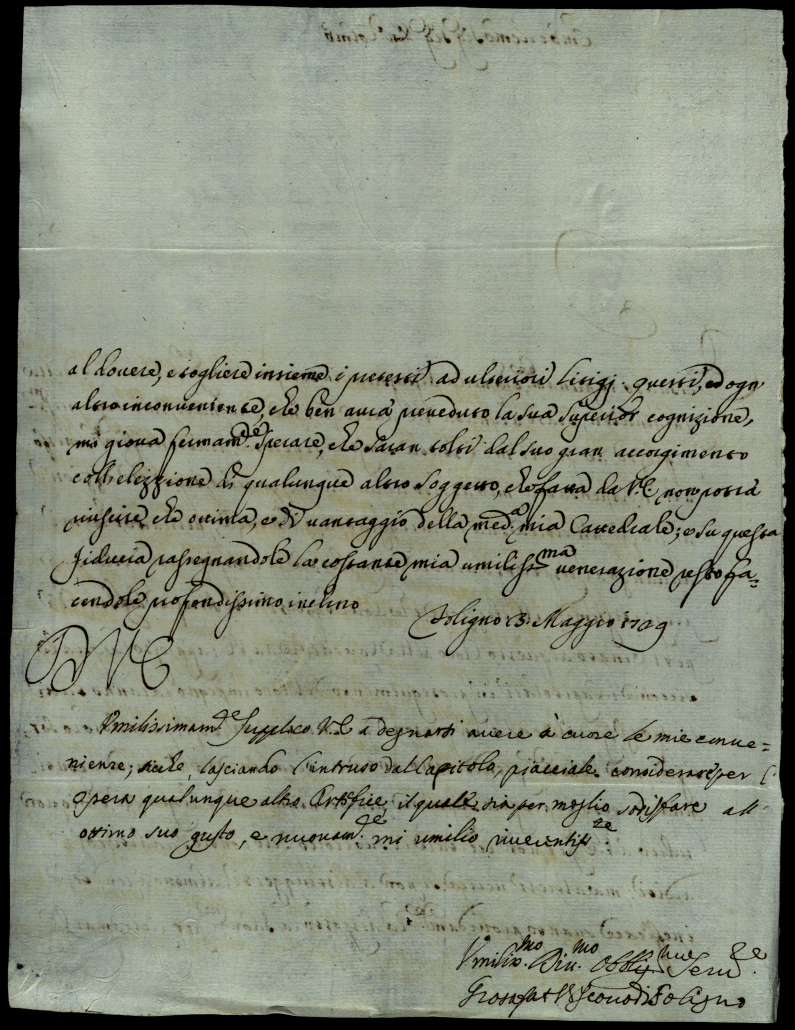 al dovere, e togliere insieme i pretesti ad ulteriori litigj. questi, ed ogn
altro inconveniente, che ben avrà preveduto la sua superior cognizione,
mi giova fermam.te sperare, che saran tolti dal suo gran accorgimento
coll'elezzione di qualunque altro soggetto, che fatta da V.E. non potrà
riuscire, che ottima, e di vantaggio della med.a mia Cattedrale; e su questa
fiducia rassegnandole la costante mia umiliss.ma venerazione resto fa=
cendole profondissimo inchino
Foligno 3 Maggio 1729
D V E
Umilissimam.te supplico V.E. a degnarsi avere à cuore le mie conve=
nienze; siche, lasciando l'intruso dal Capitolo, piacciale considerare per l'
opera qualunque altro Artefice, il quale sia per meglio sodisfare all'
ottimo suo gusto, e nuovam.te mi umilio riverentiss.te
Umiliss.mo Div.mo Obblig.mo Serv.re
Giosafat Vescovo di Foligno